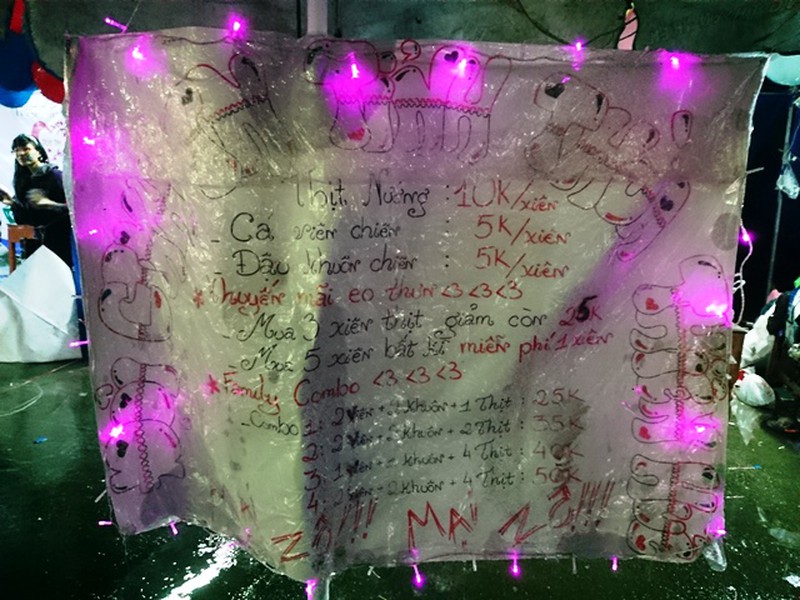 Thịt Nướng : 10K/xiên
- Cá viên chiên : 5K/xiên
- Đậu khuôn chiên : 5K/xiên
* Khuyến mãi eo thưn <3 <3 <3
- Mua 3 xiên thịt giảm còn 25K
- Mua 5 xiên bất kì miễn phí 1 xiên
* Family Combo <3 <3 <3
- Combo 1: 2 viên + khuôn + 1 Thịt : 25K
2: viên + khuôn + 2 Thịt : 35K
3: viên + khuôn + 4 Thịt :
4: viên + khuôn + 4 Thịt : 50K
ZÔ!!! MẠI ZÔ!!!!